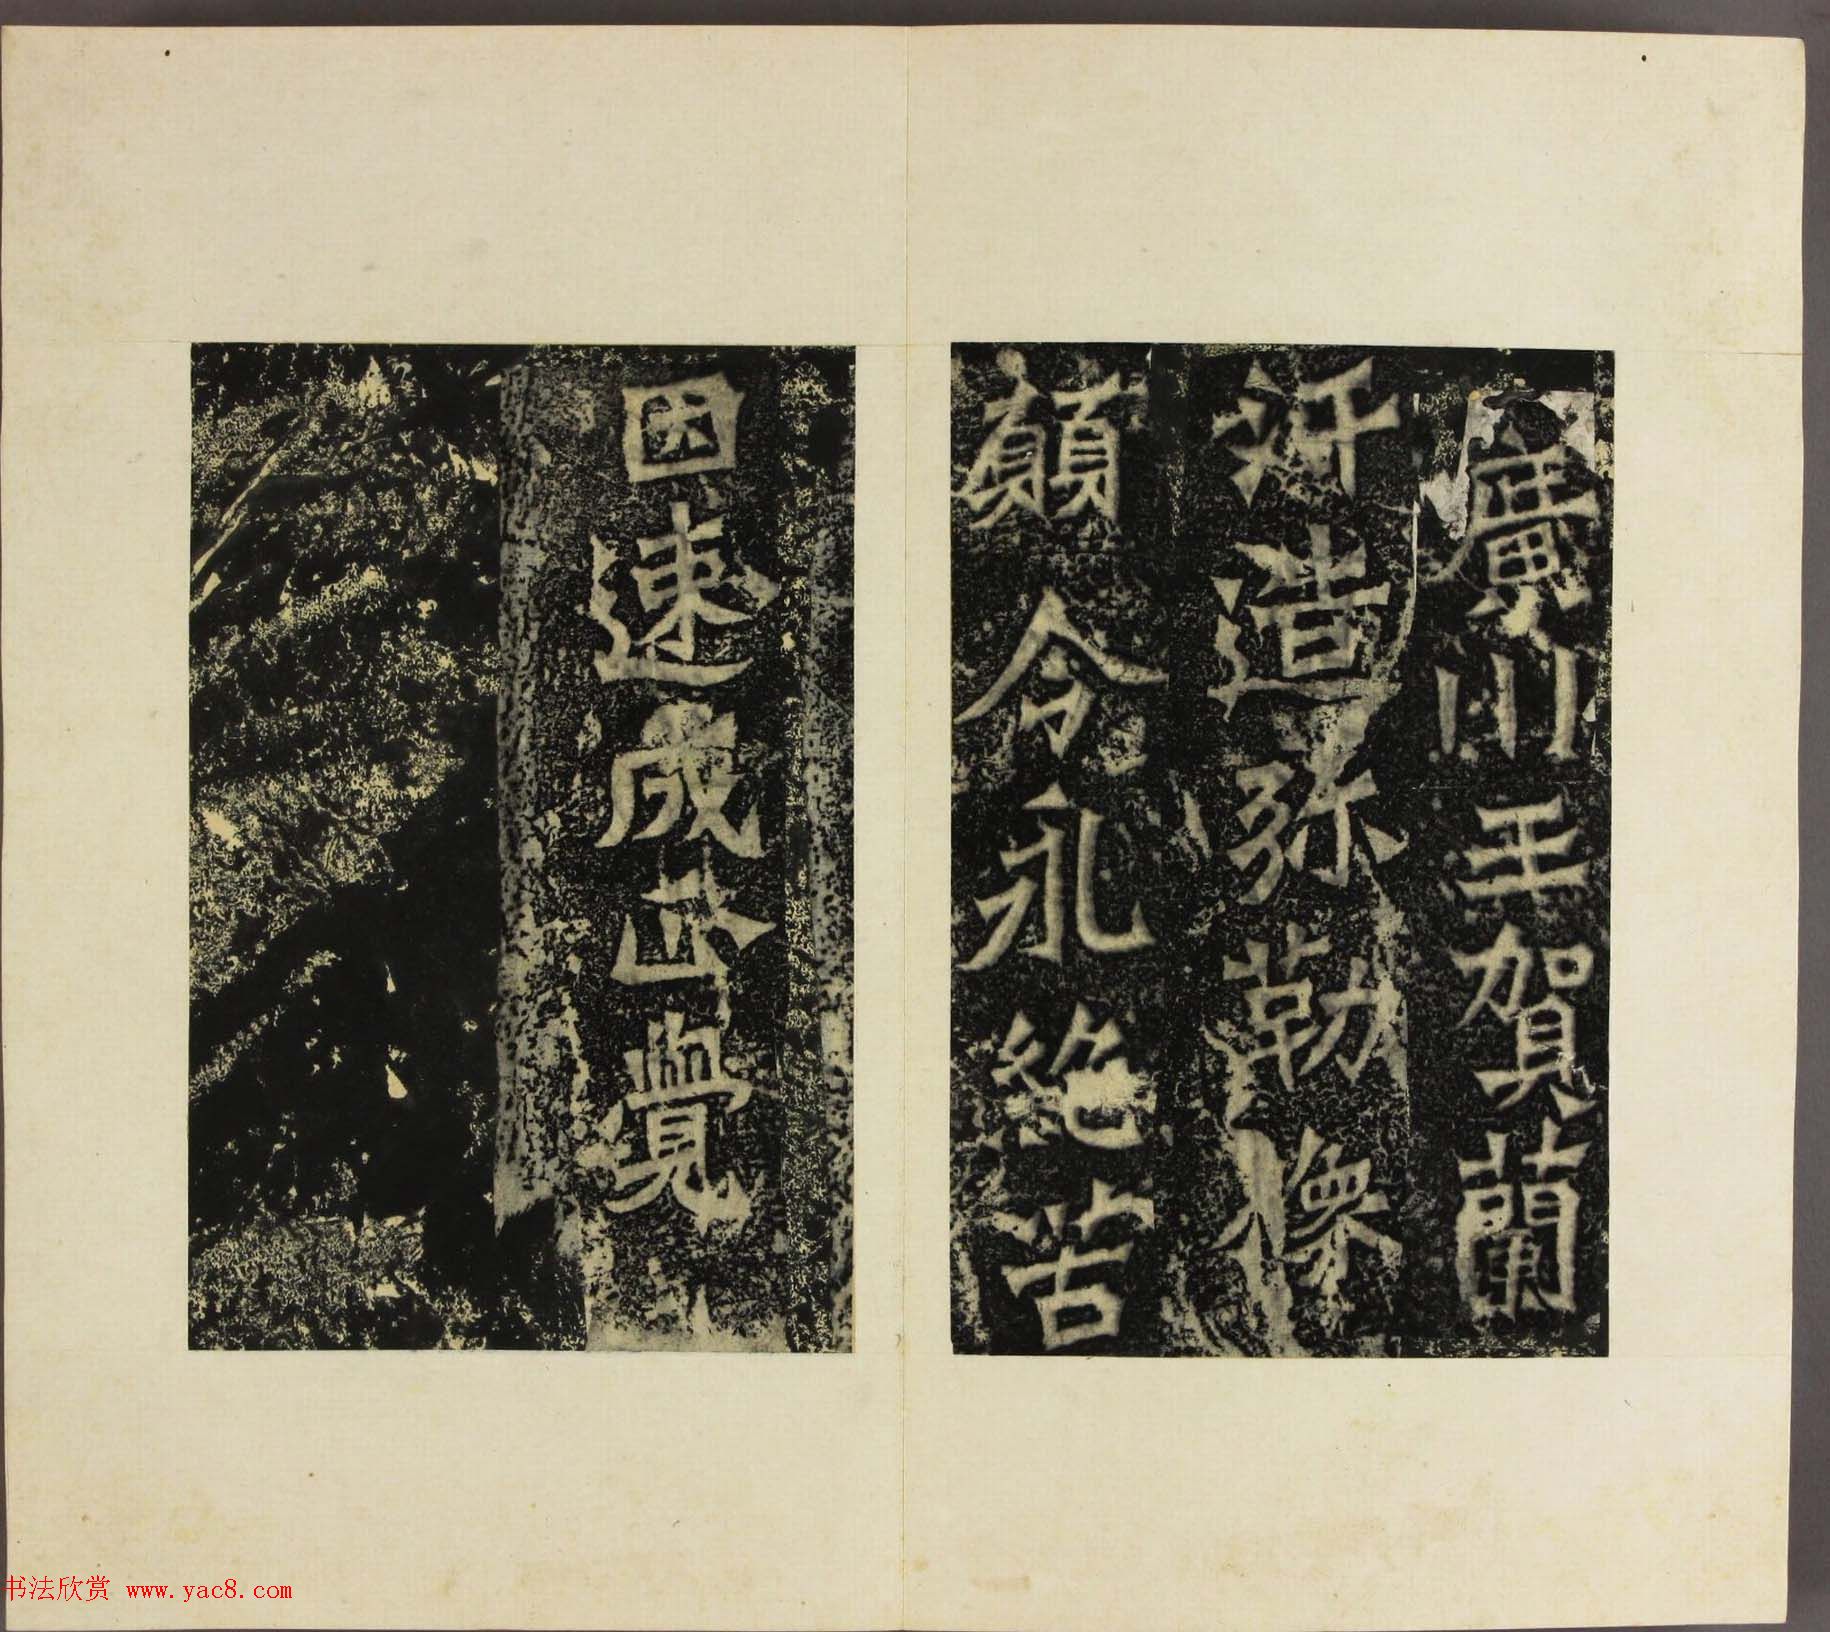 廣川王賀蘭
汗造弥勒像
願令永絶苦
因速成正覺
书法欣赏 www.yac8.com